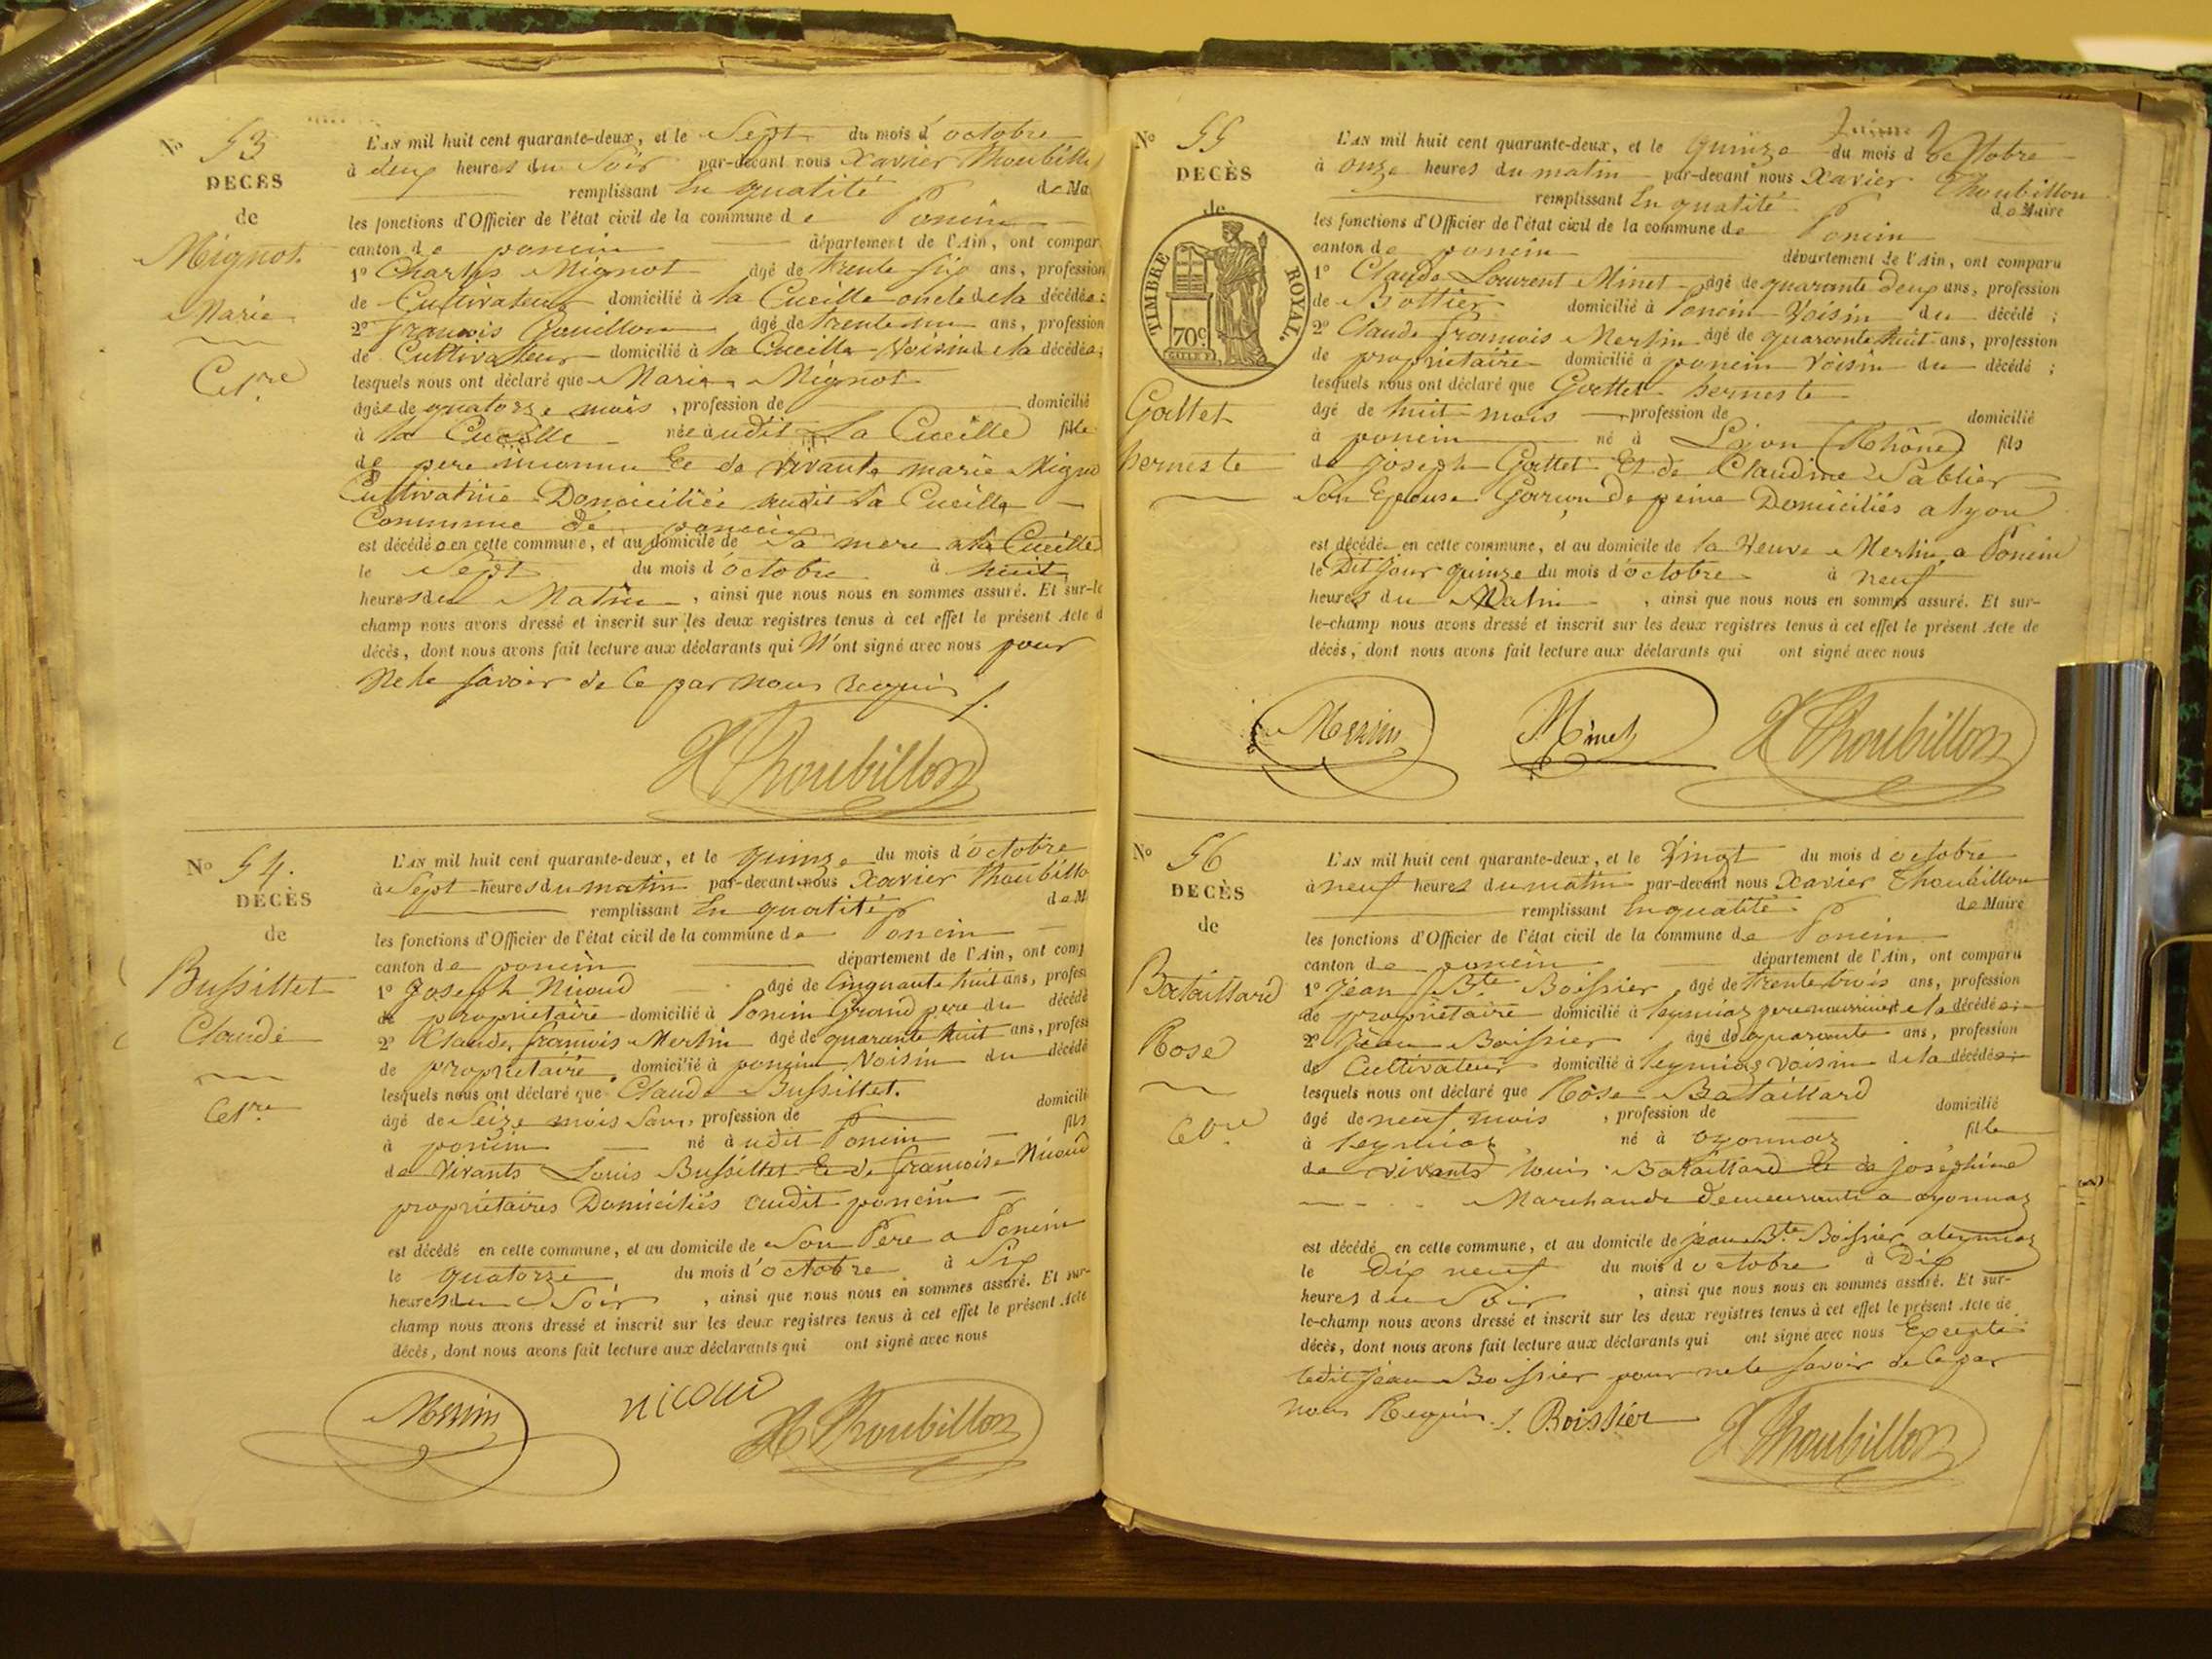 No 53
DECÈS
de
Mignot
Marie
L'AN mil huit cent quarante-deux, et le Sept du mois d'octobre
à deux heures du Soir par-devant nous Xavier Thoubillo
remplissant En qualité de Ma
les fonctions d'Officier de l'état civil de la commune de Poncin
canton de poncin département de l'Ain, ont compar
1º Charles Mignot âgé de trente six ans, profession
de Cultivateur domicilié à la Cueille oncle de la décédée;
2º françois Gouillon âgé de trente un ans, profession
de Cultivateur domicilié à la Cueille Voisin de la décédée;
lesquels nous ont déclaré que Marie Mignot
âgée de quatorze mois, profession de domicilié
à la Cueille née audit La Cueille fille
de pere inconnu Et de vivante marie Migno
Cultivatrice Domiciliée audit la Cueille
Commune de poncin
est décédée en cette commune, et au domicile de Sa mere à la Cueille
le Sept du mois d'octobre à huit
heures du Matin, ainsi que nous nous en sommes assuré. Et sur-le
champ nous avons dressé et inscrit sur les deux registres tenus à cet effet le présent Acte d
décès, dont nous avons fait lecture aux déclarants qui N'ont signé avec nous pour
Ne le savoir de ce par nous requis
X Thoubillon
No 54.
DECÈS
de
Bussillet
Claude
L'AN mil huit cent quarante-deux, et le quinze du mois d'octobre
à Sept heures du matin par-devant nous Xavier Thoubillo
remplissant En qualité de M
les fonctions d'Officier de l'état civil de la commune de Poncin
canton de poncin département de l'Ain, ont comp
1º Joseph Nicoud âgé de Cinquante huit ans, profess
de proprietaire domicilié à Poncin Grand pere du décédé
2º Claude françois Merlin âgé de quarante huit ans, profess
de proprietaire domicilié à poncin Voisin du décédé
lesquels nous ont déclaré que Claude Bussillet.
âgé de Seize mois Sans, profession de domicili
à poncin né audit Poncin fils
de Vivants Louis Bussillet Et de françoise Nicoud
propriétaires Domiciliés audit poncin
est décédé en cette commune, et au domicile de Son Pere a Poncin
le quatorze du mois d'octobre à Six
heures du Soir, ainsi que nous nous en sommes assuré. Et sur-
champ nous avons dressé et inscrit sur les deux registres tenus à cet effet le présent Acte
décès, dont nous avons fait lecture aux déclarants qui ont signé avec nous
Merlin nicoud X Thoubillon
No 55
DECÈS
de
TIMBRE ROYAL.
70c
Gottet
herneste
L'AN mil huit cent quarante-deux, et le quinze du mois d'octobre
à onze heures du matin par-devant nous Xavier Thoubillon
remplissant En qualité de Maire
les fonctions d'Officier de l'état civil de la commune de Poncin
canton de poncin département de l'Ain, ont comparu
1º Claude Lourent Minet âgé de quarante deux ans, profession
de Bottier domicilié à Poncin Voisin du décédé;
2º Claude françois Merlin âgé de quarante huit ans, profession
de proprietaire domicilié à poncin Voisin du décédé;
lesquels nous ont déclaré que Gottet herneste
âgé de huit mois profession de domicilié
à poncin né à Lyon (Rhône) fils
de Joseph Gottet Et de Claudine Sablier
Son Epouse Garçon de peine Domiciliés a lyon
est décédé en cette commune, et au domicile de la Veuve Merlin a Poncin
le Dit jour quinze du mois d'octobre à neuf
heures du Matin, ainsi que nous nous en sommes assuré. Et sur-
le-champ nous avons dressé et inscrit sur les deux registres tenus à cet effet le présent Acte de
décès, dont nous avons fait lecture aux déclarants qui ont signé avec nous
Merlin Minet X Thoubillon
No 56
DECÈS
de
Bataillard
Rose
L'AN mil huit cent quarante-deux, et le Vingt du mois d'octobre
à neuf heures du matin par-devant nous Xavier Thoubillon
remplissant En qualité de Maire
les fonctions d'Officier de l'état civil de la commune de Poncin
canton de poncin département de l'Ain, ont comparu
1º Jean Bte Boissier âgé de trente trois ans, profession
de propriétaire domicilié à leymiaz pere nourricier de la décédée;
2º Jean Boissier âgé de quarante ans, profession
de Cultivateur domicilié à leymiaz Voisin de la décédée;
lesquels nous ont déclaré que Rose Bataillard
âgé de neuf mois, profession de domicilié
à leymiaz né à oyonnaz fille
de vivants louis Bataillard Et de Joséphine
Marchands demeurants a oyonnaz
est décédé en cette commune, et au domicile de jean Bte Boissier a leymiaz
le Dix neuf du mois d'octobre à Dix
heures du Soir, ainsi que nous nous en sommes assuré. Et sur-
le-champ nous avons dressé et inscrit sur les deux registres tenus à cet effet le présent Acte de
décès, dont nous avons fait lecture aux déclarants qui ont signé avec nous Excepté
ledit Jean Boissier pour ne le savoir de ce par
nous Requis. Boissier X Thoubillon